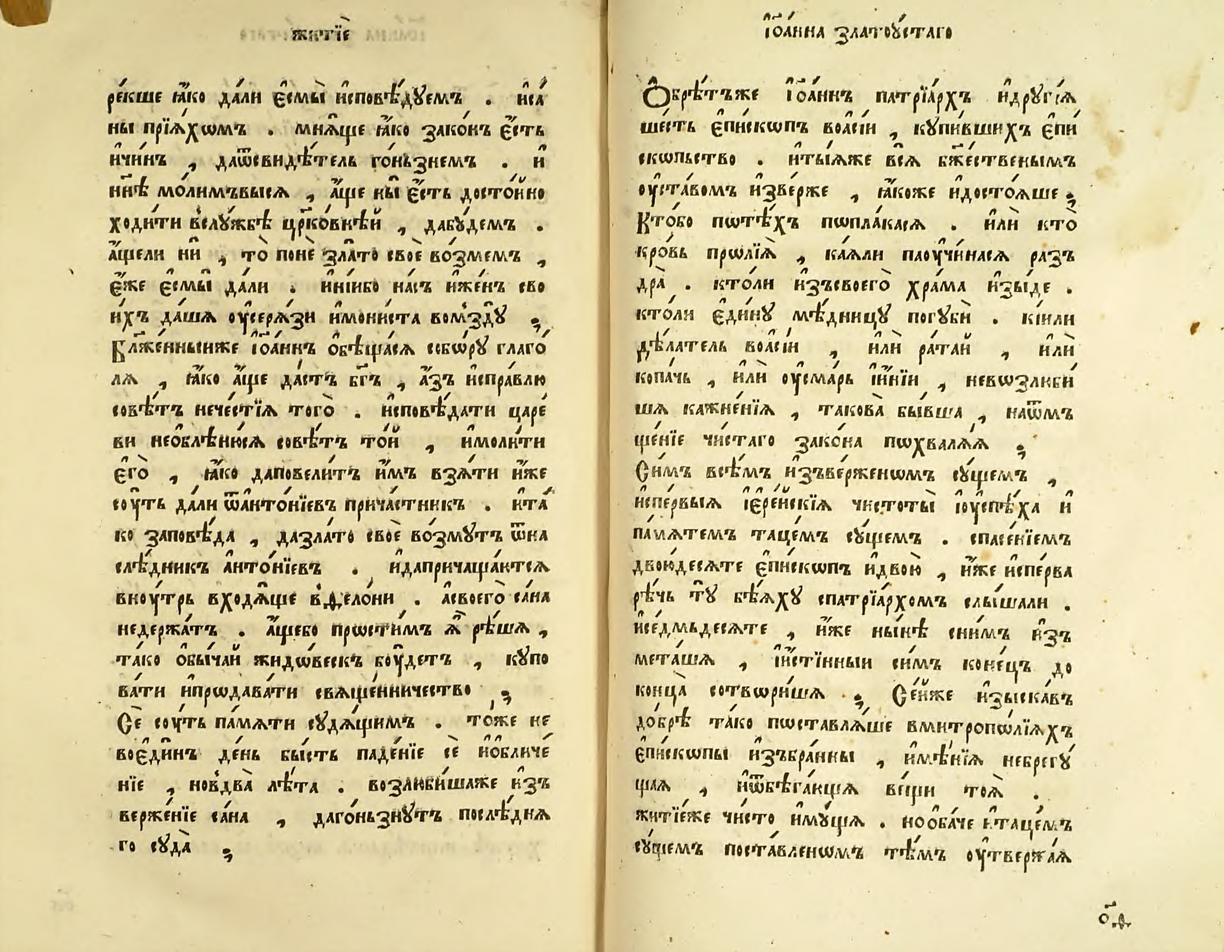 житїѐ
ре́кше ꙗ҆́ко дали є҆смы̀ и҆сповѣ́дꙋемъ . и҆са́
ны прїѧ́хѡмъ . мнѧ́ще ꙗ҆́ко зако́нъ є҆́сть
и҆чи́нъ , даѿсвидѣ́тель го́ньзнемъ . и҆
нн҃ѣ мо́лимъвысѧ , а҆́ще ны̀ є҆́сть досто́йно
ходи́ти вслꙋ́жбѣ црⷪ҇ко́внѣй , дабꙋ́демъ .
а҆́щели нѝ , то̀ понѐ зла́то своѐ во́змемъ ,
є҆́же є҆смы̀ да́ли . и҆нїи́бо на́съ и҆же́нъ сво
и́хъ да́шѧ ᲂу҆серѧ́зи и҆мони́ста вомьздꙋ̀
Бл҃же́нныиже і҆ѡа́ннъ ѻ҆бѣща́сѧ ссбо́рꙋ глаго́
лѧ , ꙗ҆́ко а҆́ще да́стъ бг҃ъ , а҆́зъ и҆спра́влю
совѣ́тъ нече́стїѧ того̀ . и҆сповѣ́дати царе́
ви необлѣни́сѧ совѣ́тъ то́й , и҆моли́ти
є҆го̀ , ꙗ҆́ко даповели́тъ и҆̀мъ взѧ́ти и҆̀же
соу́ть да́ли ѿанто́нїевъ прича́стникъ . и҆та́
ко заповѣ́да , дазла́то своѐ во́змꙋтъ ѿна
слѣ́дникъ а҆нто́нїевъ . и҆даприча́щаютсѧ
внꙋ́трь входѧ́ще в҆ѳ҆ело́ни . а҆своего̀ са́на
недержа́тъ . а҆́щебо прѡсти́мъ ѧ҆̀ рѣ́шѧ ,
та́ко ѻ҆бы́чай жидо́вескъ боу́детъ , кꙋпо
ва́ти и҆прѡдава́ти свѧще́нничество
Сѐ соу́ть па́мѧти сꙋдѧ́щимъ . то́же не
воє҆ди́нъ де́нь бы́сть паде́нїе сѐ и҆ѡбличе́
нїе , новдва̀ лѣ́та . возлюби́шаже и҆зъ
верже́нїе са́на , даго́ньзнꙋтъ послѣ́днѧ
го сꙋда̀
і҆ѡа́нна златоꙋ́стаго
Ѻ҆брѣ́тъже і҆ѡа́ннъ патрїа́рхъ и҆дрꙋгі́ѧ
ше́сть є҆пи́скопъ воасі́и , кꙋпи́вшихъ є҆пи́
скопьство . и҆ты́ѧже всѧ̀ бж҃е́ственымъ
ᲂу҆ста́вомъ и҆зве́рже , ꙗ҆́коже и҆досто́ѧше
Кто́бо пѡтѣ́хъ пѡпла́касѧ . и҆лѝ кто̀
кро́вь прѡлїѧ̀ , ка́ѧли паоучи́насѧ раз̾
дра̀ . кто́ли и҆зъсвоего̀ хра́ма и҆зы́де .
кто́ли є҆ди́нꙋ мѣ́дницꙋ погꙋбѝ . кі́или
дѣ́латель воасі́и , и҆лѝ рата́й , и҆лѝ
копа́чь , и҆лѝ ᲂу҆сма́рь и҆́нїи , невѡзлюби́
шѧ кажне́нїѧ , такова̀ бы́вша , наѿм
ще́нїе чи́стаго зако́на пѡхвалѧ́ѧ
Си́мъ всѣ́мъ и҆зъве́рженѡмъ сꙋ́щемъ ,
и҆спе́рвыѧ і҆ере́йскїѧ чистоты̀ ю҆спѣ́ха и҆
па́мѧтем таце́мъ сꙋ́щемъ . спасе́нїемъ
двоюдесѧ́те є҆пи́скопъ и҆двою̀ , и҆́же и҆спе́рва
рѣ́чь тꙋ̀ бѣ́ѧхꙋ спатрїа́рхомъ слы́шали .
и҆седмьдесѧ́те , и҆́же ны́нѣ сни́мъ и҆зъ
мета́шѧ , и҆и҆́стїнныи си́мъ коне́цъ до
конца̀ сотвѡри́шѧ . Се́йже и҆зыска́въ
до́брѣ та́ко пѡставлѧ́ше вмитропѡ́лїѧхъ
є҆пи́скопы и҆збра́нны , и҆мѣ́нїѧ небрегꙋ́
щаѧ , и҆ѿбѣ́гающѧ ве́щи тоѧ̀ .
житїе́же чи́сто и҆мꙋ́щѧ . но ѻ҆ба́че ктаце́мъ
сꙋ́щемъ поставле́нѡмъ тѣ́мъ ᲂу҆твержа́ѧ
ѻ҃ѳ